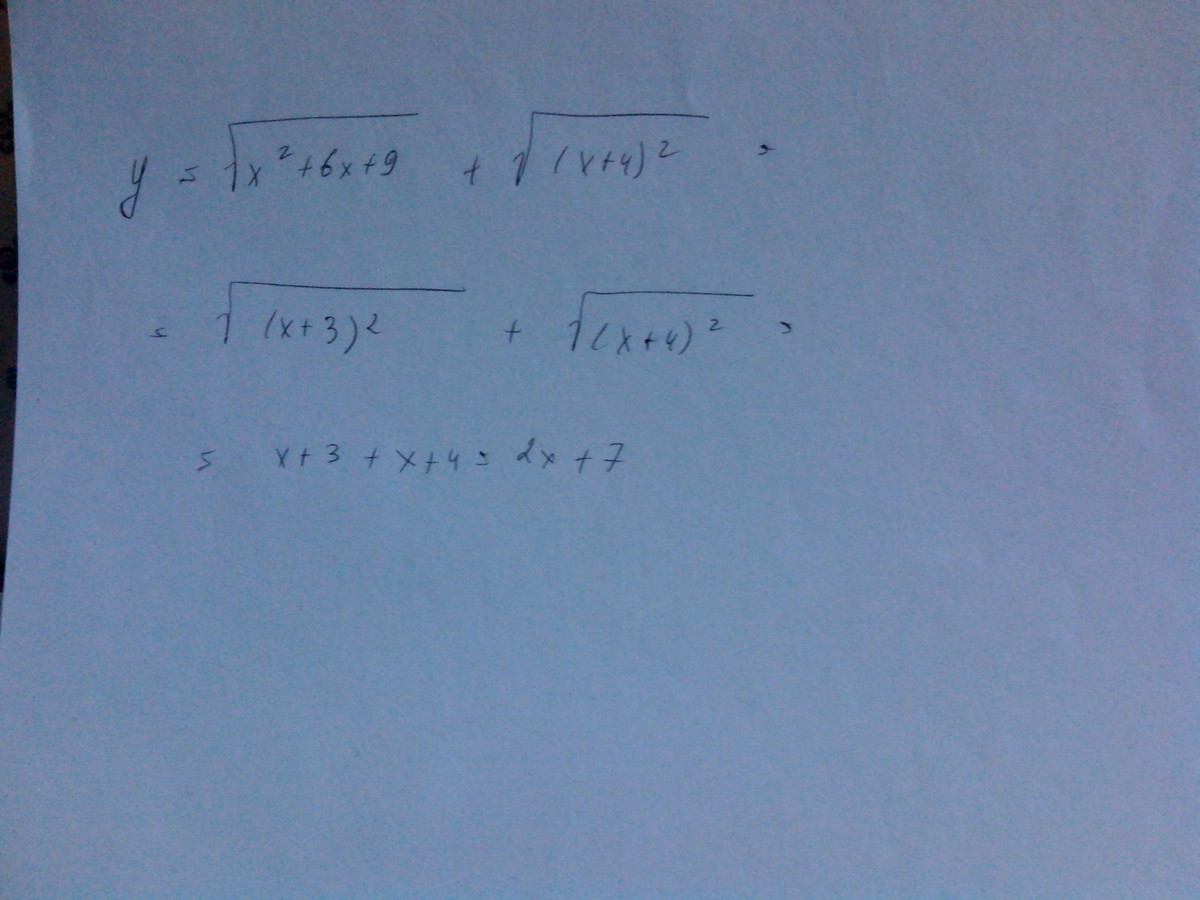 y = √(x²+6x+9) + √((x+4)²) =
= √((x+3)²) + √((x+4)²) =
= x+3 + x+4 = 2x+7